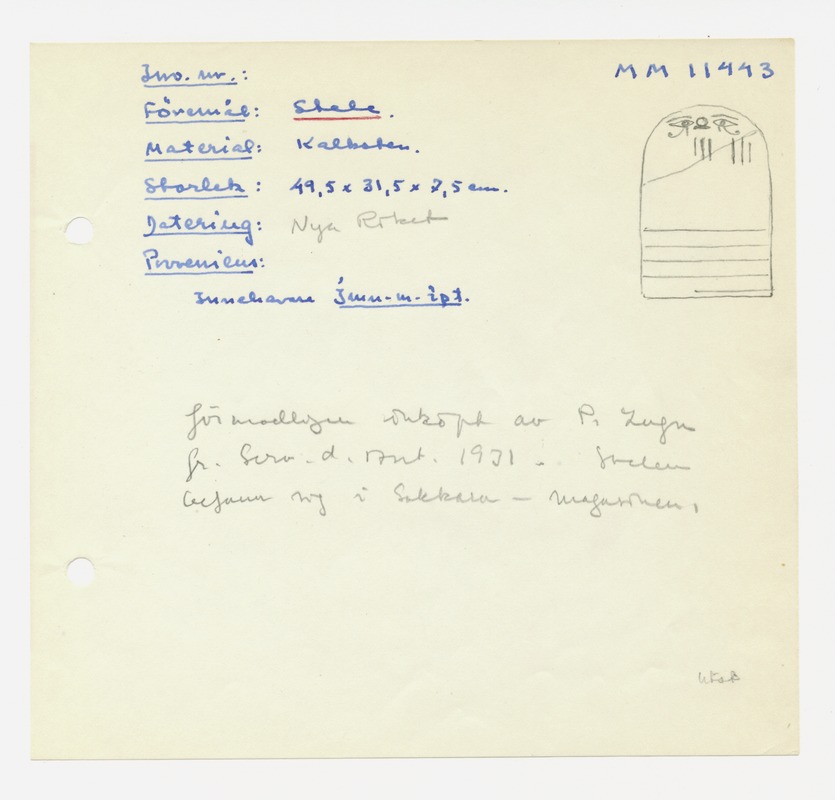 Inv. nr.: MM 11443
Föremål: Stele.
Material: Kalksten.
Storlek: 49,5 x 31,5 x 7,5 cm.
Datering: Nya Riket
Proveniens:
Innehavare Ỉmn-m-ỉpt.
förmodligen inköpt av P. Lugn
fr. Serv. d. Ant. 1931 . Stelen
befann sig i Sakkara - magasinen.